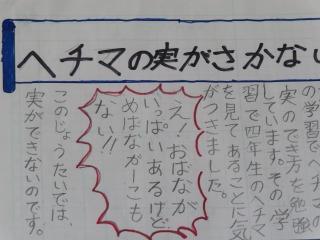 ヘチマの実がさかない
の学習で
実のでき方を勉強
しています。その学
習で四年生のヘチマ
を見てあることに気
がつきました。
え！おばなが
いっぱいあるけど
めばながーこも
ない!!
このじょうたいでは、
実ができないのです。